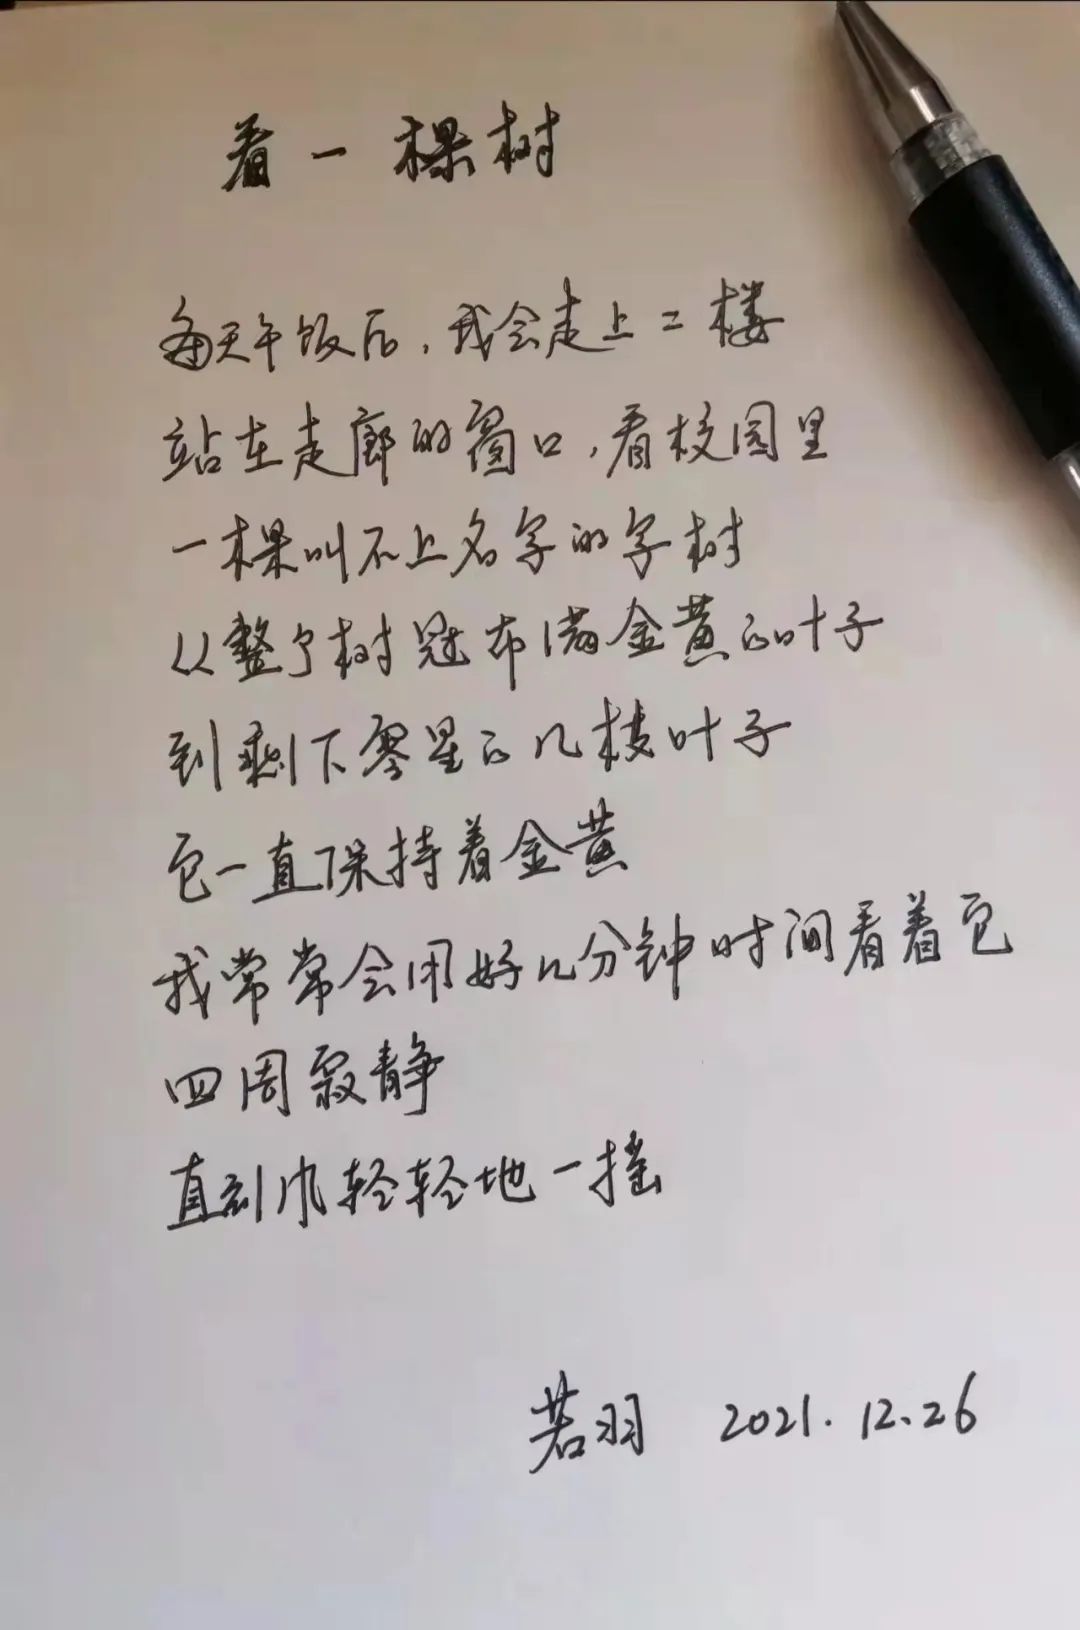 看一棵树
每天午饭后，我会走上二楼
站在走廊的窗口，看校园里
一棵叫不上名字的字树
从整个树冠布满金黄的叶子
到剩下零星的几枝叶子
它一直保持着金黄
我常常会用好几分钟时间看着它
四周寂静
直到风轻轻地一摇
若羽 2021.12.26